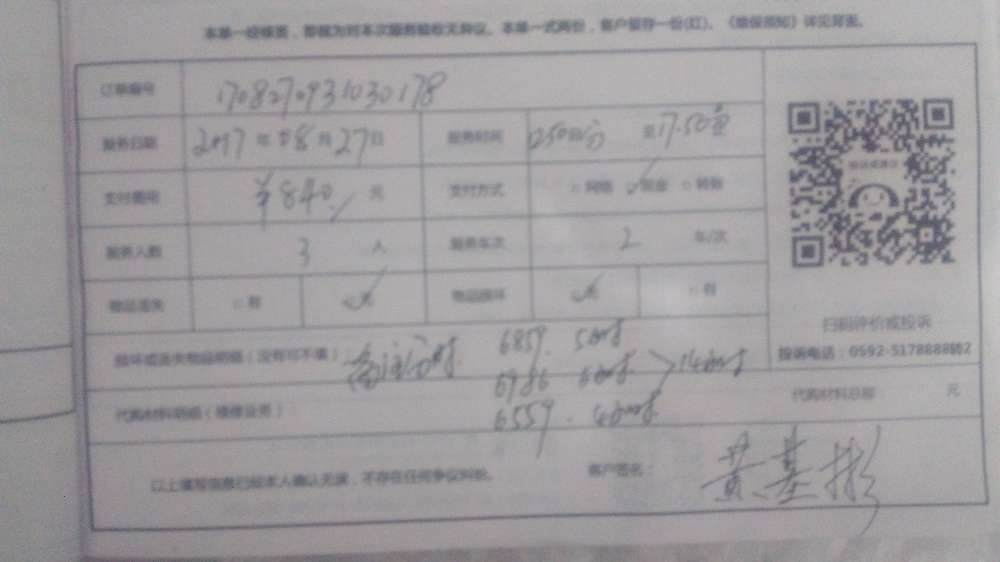 本单一经核签，即视为对本次服务验收无异议。本单一式两份，客户留存一份(红)。《维保须知》详见背面。
订单编号 1708270931030178
服务日期 2017年 08月 27日 服务时间 至17.50
支付费用 ¥840 元 支付方式 □网络 ☑现金 □转账
服务人数 3 人 服务车次 2 车/次
物品丢失 □有 ☑无 物品损坏 ☑无 □有
损坏或丢失物品明细（没有可不填） 6859. 5小时
6986 5小时 >14小时
代购材料明细（维修业务） 6559. 4小时 代购材料总额： 元
以上填写信息已经本人确认无误，不存在任何争议纠纷。 客户签名： 黄基彬
扫码评价或投诉
投诉电话：0592-5178888转2